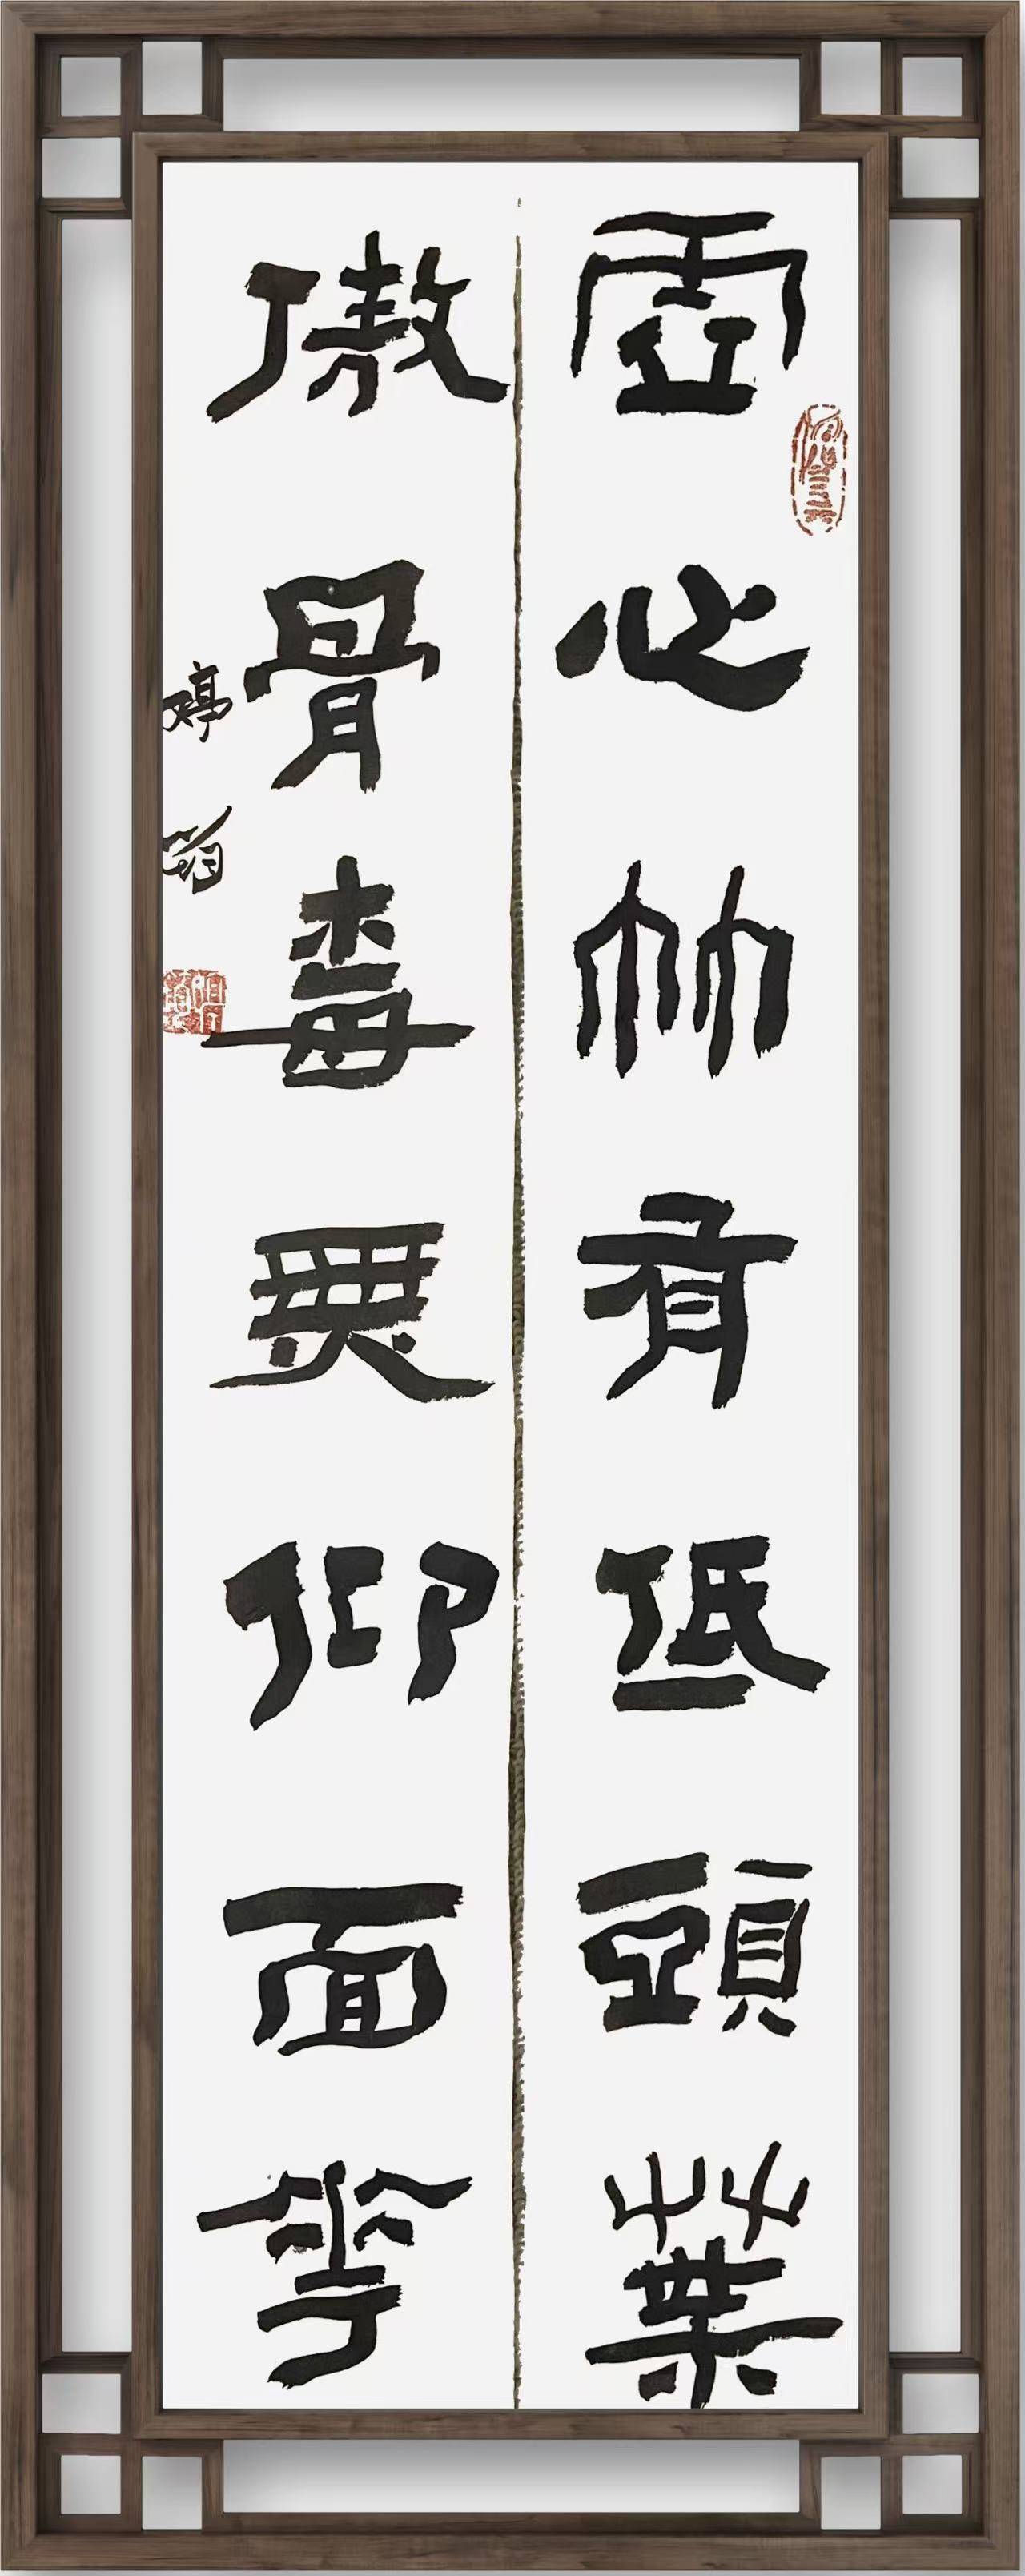 虛心竹有低頭葉
傲骨梅無仰面花
婷